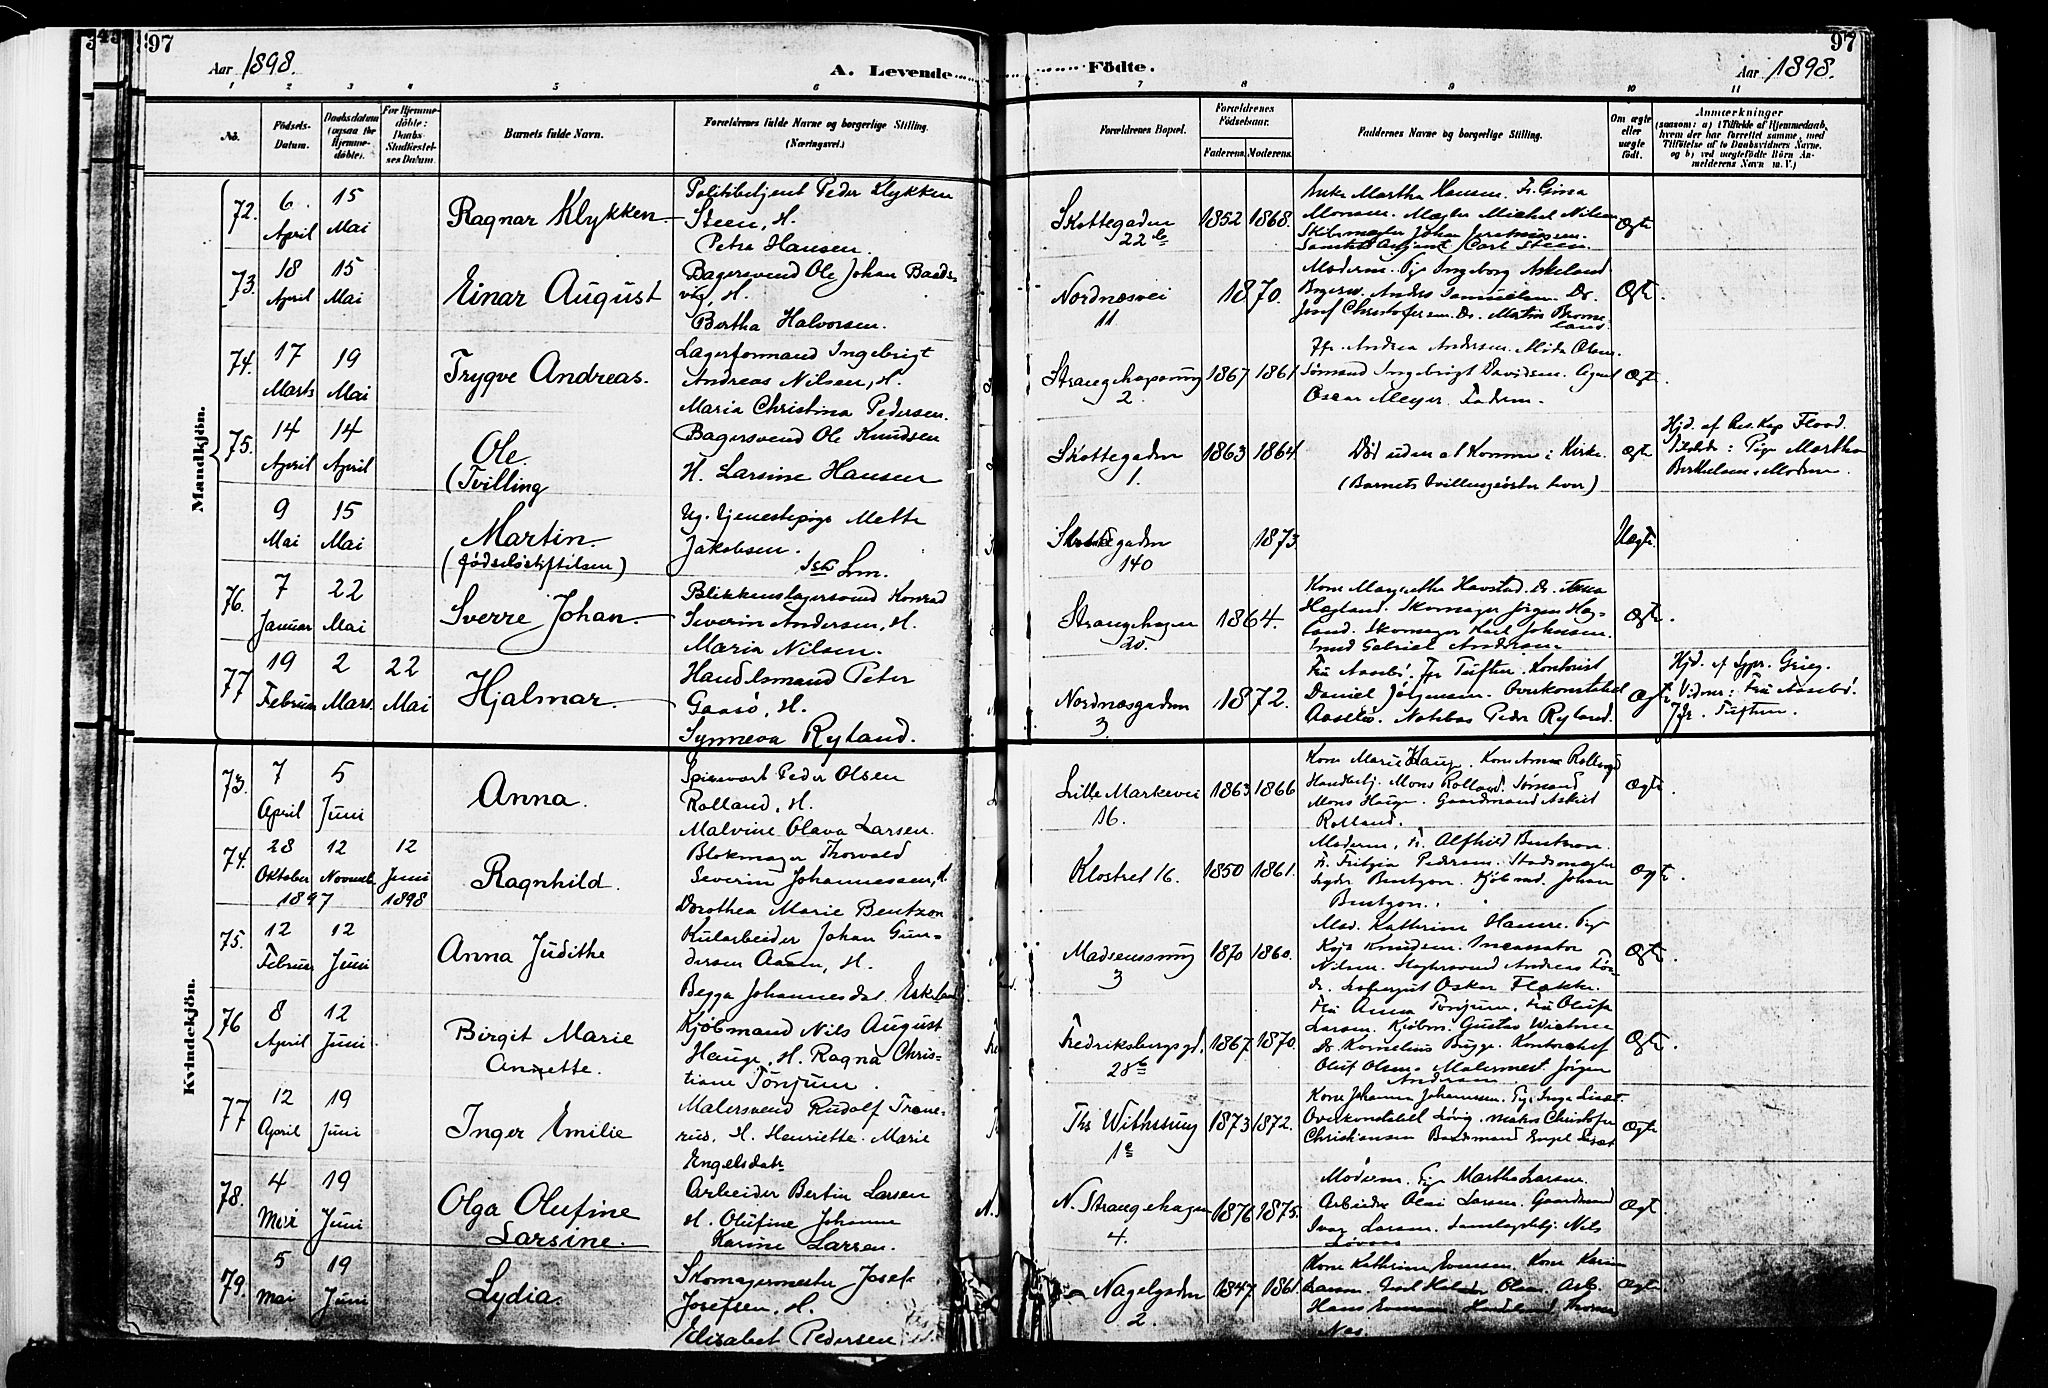 97
Aar 1898.
A. Levende
Födte.
Aar 1898.
97
1 2 3 4 5 6 7 8 9 10 11
No.
Födsels-
Datum.
Daabsdatum
(ogsaa for
Hjemme-
döbte).
For Hjemme-
döbte:
Daabs-
Stadfæstel-
ses Datum.
Barnets fulde Navn.
Forældrenes fulde Navne og borgerlige Stilling.
(Næringsvei.)
Forældrenes Bopæl.
Forældrenes
Födselsaar.
Faderens. Moderens.
Faddernes Navne og borgerlige Stilling.
Om ægte
eller
uægte
født.
Anmærkninger
(saasom: a) i Tilfælde af Hjemmedaab,
hvem der har forrettet samme, med
Tilföielse af to Daabsvidners Navne,
og b) ved uægtefödte Börn An-
melderens Navn m. V.)
Mandkjön.
72.
6 April
15 Mai
Ragnar Klykken
Politibetjent Peder Klykken
Steen, H.
Petra Hansen.
Skottegaden
22
1852 1868.
Martha Hansen. Fr. Gina
Monsen. Mægler Michal Nilsen
Carl Steen.
Ægte
73.
18 April
15 Mai
Einar August
Bagersvend Ole Johan Baads-
vig, H.
Bertha Halvorsen.
Nordnæsvei
11
1870.
Moderen. Pige Ingeborg Askeland
Bagersv. Anders Samuelsen. Do.
Josef Christofersen. Do. Martin
Ægte.
74.
17 Marts
19 Mai
Trygve Andreas.
Lagerformand Ingebrigt
Andreas Nilsen, H.
Maria Christina Pedersen.
Strangehagen
2.
1867 1861
Jfr. Andrea Andersen. Olsen.
Sömand Ingebrigt Davidsen. Agent
Oscar Meyer. Faderen.
Ægte.
75.
14 April
14 April
Ole
(Tvilling
Bagersvend Ole Knudsen
H. Larsine Hansen
Skottegaden
1.
1863 1864.
Död uden at komme i Kirke.
(Barnets Tvillingsöster lever)
Ægte
Hjd. af Res. Kap Flood.
Pige Martha
Berthelsen, Moderen.
9 Mai
15 Mai
Martin.
(födselsstiftelsen)
Ug. tjenestepige Mette
Jakobsen.
1ste Lm.
140
1873
Uægte.
76.
7 Januar
22 Mai
Sverre Johan.
Blikkenslagersvend Konrad
Severin Andersen, H.
Maria Nilsen.
Strangehagen
20.
1864.
Kone Margrethe Havstad. Do. Anna
Hægland. Skomager Jörgen Hæg-
land. Skomager Karl Johnsen.
Svend Gabriel Andersen
Ægte.
77
19 Februar
2 Mars.
22 Mai
Hjalmar.
Handelsmand Peter
Gaasö, H.
Synneva Ryland.
Nordnæsgaden
3.
1872.
Fru Aasebö. Jfr Tuften. Kontorist
Daniel Jörgensen. Overkonstabel
Aasebö. Notebas Peder Ryland.
Ægte.
Hjd. af Sypr. Grieg.
Vidner: Fru Aasebö.
Jfr. Tuften.
Kvindekjön.
73.
7 April
5 Juni
Anna.
Peder Olsen
Rolland, H.
Malvine Olava Larsen.
Lille Markevei
16.
1863 1866
Kone Marie Hauge. Kone Anna Rolland
Mons Rolland. Sömand
Mons Hauge. Gaardmand Askild
Rolland.
Ægte.
74.
28 Oktober
12 Novemb.
1897
12 Juni
1898
Ragnhild.
Blokmager Thorvald
Severin Johannessen, H.
Dorothea Marie Bentzon
Klostret 16.
1850 1861.
Moderen, Fr. Alfhild Bentzon.
Fr. Pedersen. Stadsmægler
Bentzon. Kjöbmd. Johan
Bentzon.
Ægte.
75.
12 Februar
12 Juni
Anna Judithe
Kularbeider Johan Gun-
dersen Aasen, H.
Begga Johannesdat. Eskeland
Madsenssmug
3
1870 1860.
Mad. Kathrine Hansen. Pige
Kaja Knudsen. Incassator
Nilsen. Slagtersvend Andreas
Oskar Flekke.
Ægte.
76
8 April
12 Juni
Birgit Marie
Annette.
Kjöbmand Nils August
Hauge, H. Ragna Chris-
tiane Tönjum.
Fredriksbergsgd.
28
1867. 1870.
Fru Anna Tönjum. Fru Olufa
Larsen. Kjöbm. Gustav
Dr. Kornelius Bugge. Kontorchef
Oluf Olsen. Malermest. Jörgen
Andersen
Ægte.
77
12 April
19 Juni
Inger Emilie
Malersvend Rudolf Trane-
rus, H. Henriette Marie
Engelsdatr.
Ths Withssmug
1
1873 1872.
Kone Johanna Johannesen. Pige Inga
Overkonstabel Christofer
Christiansen Baadsmand Engel
Ægte
78.
4 Mai
19 Juni
Olga Olufine
Larsine.
Arbeider Bertin Larsen
H. Olufine Johanne
Karine Larsen.
N. Strangehagen
4.
1876 1875.
Moderen. Pige Martha Larsen.
Arbeider Olai Larsen. Gaardmand
Ivar Larsen. Nils
Ægte
79.
5 Mai
19 Juni
Lydia.
Skomagermester Josef
Josefsen, H.
Elizabet Pedersen
Nagelgaden
2.
1847 1861.
Kone Kathrine Evensen. Kone Karin
Hans
Næs.
Ægte.